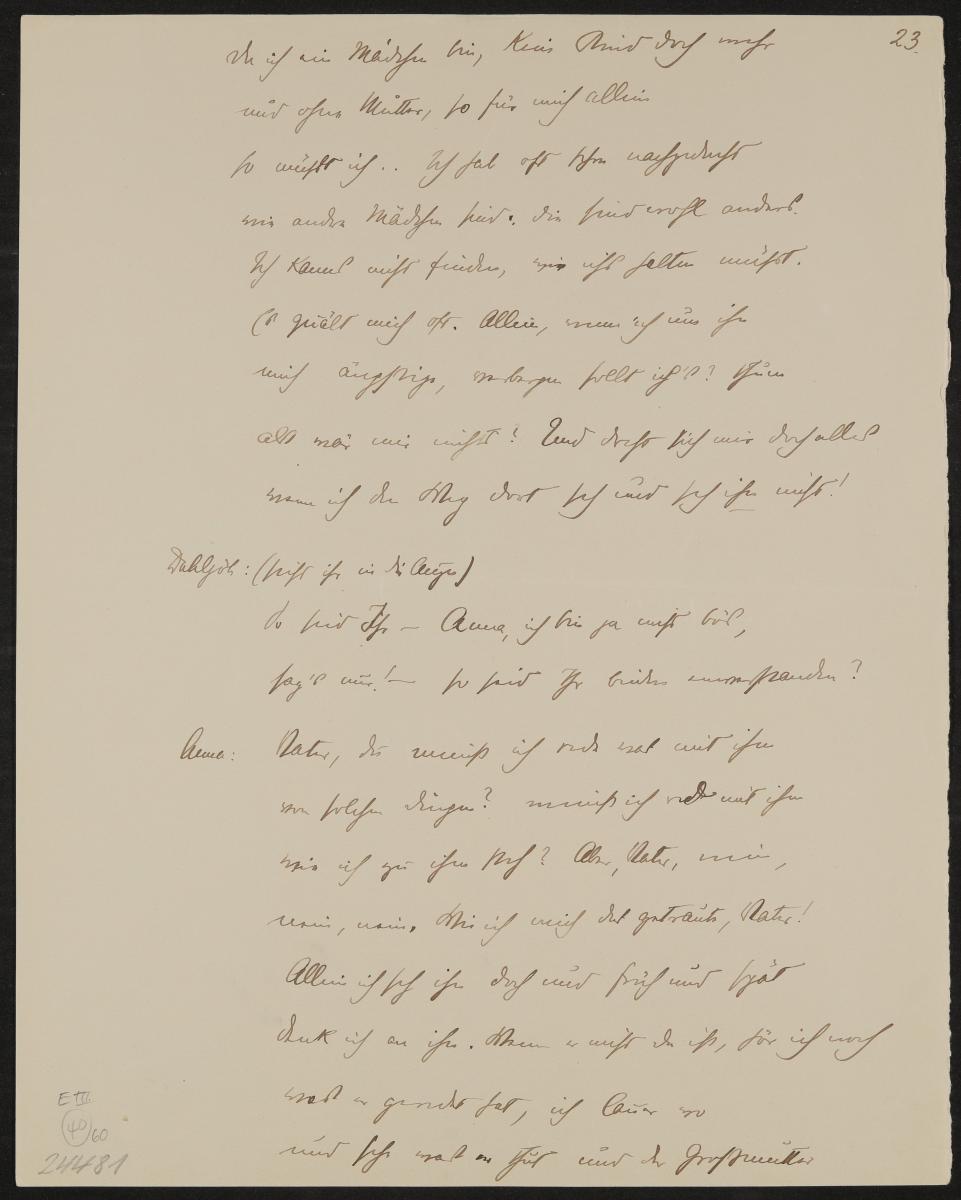 23.
Da ich ein Mädchen bin, kein Kind doch mehr
und ohne Mutter, so für mich allein
so müßt ich .. Ich hab oft schon nachgedacht
wie andre Mädchen sind. die sind wohl anders.
Ich kanns nicht finden, wie ichs halten müßt.
Es quält mich oft. Allein, wenn ich um ihn
mich ängstige, verbergen sollt ich's? thun
als wär mir nichts? Und dreht sich mir doch alles
wenn ich den Weg dort seh und seh ihn nicht!
(sieht ihr in die Augen)
So seid Ihr — Anna, ich bin ja nicht bös,
sag's nur! — so seid Ihr beiden einverstanden?
Anna: Vater, du meinst ich rede was mit ihm
von solchen Dingen? meinst ich rede mit ihm
wie ich zu ihm steh? Aber, Vater, nein,
nein, nein. Wie ich mich das getraute, Vater!
Allein ich seh ihn doch und früh und spät
denk ich an ihn. Wenn er nicht da ist, hör ich noch
was er geredet hat, ich lauer wo
und seh was er thut und der Großmutter
E III
40
60
24481